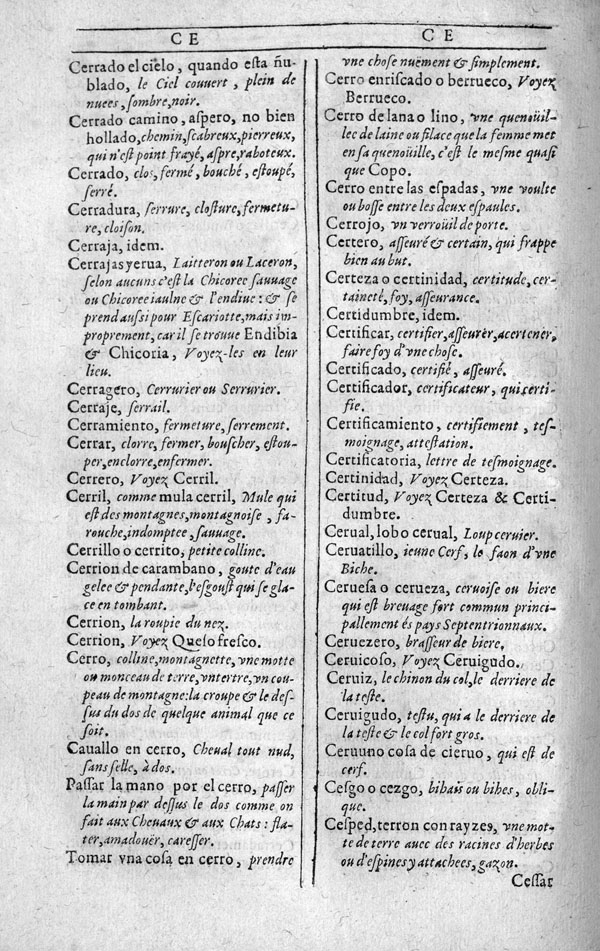 CE
Cerrado el cielo, quando esta ñu-
blado, le Ciel couuert, plein de
nuees, sombre, noir.
Cerrado camino, aspero, no bien
hollado, chemin, scabreux, pierreux,
qui n'est point frayé, aspre, raboteux.
Cerrado, clos, fermé, bouché, estoupé,
serré.
Cerradura, serrure, closture, fermetu-
re, cloison.
Cerraja, idem.
Cerrajas yerua, Laitteron ou Laceron,
selon aucuns c'est la Chicoree sauuage
ou Chicoree iaulne & l'endiue: & se
prend aussi pour Escariotte, mais im-
proprement, car il se trouue Endibia
& Chicoria, Voyez-les en leur
lieu.
Cerragero, Cerrurier ou Serrurier.
Cerraje, serrail.
Cerramiento, fermeture, serrement.
Cerrar, clorre, fermer, bouscher, estou-
per, enclorre, enfermer.
Cerrero, Voyez Cerril.
Cerril, comme mula cerril, Mule qui
est des montagnes, montagnoise, fa-
rouche, indomptee, sauuage.
Cerrillo o cerrito, petite colline.
Cerrion de carambano, goute d'eau
gelee & pendante, l'esgoust qui se gla-
ce en tombant.
Cerrion, la roupie du nez.
Cerrion, Voyez Queso fresco.
Cerro, colline, montagnette, vne motte
ou monceau de terre, vn tertre, vn cou-
peau de montagne: la croupe & le des-
sus du dos de quelque animal que ce
soit.
Cauallo en cerro, Cheual tout nud,
sans selle, à dos.
Passar la mano por el cerro, passer
la main par dessus le dos comme on
fait aux Cheuaux & aux Chats: fla-
ter, amadouër, caresser.
Tomar vna cosa en cerro, prendre
CE
vne chose nuëment & simplement.
Cerro enriscado o berrueco, Voyez
Berrueco.
Cerro de lana o lino, vne quenoüil-
lec de laine ou filace que la femme met
en sa quenoüille, c'est le mesme quasi
que Copo.
Cerro entre las espadas, vne voulte
ou bosse entre les deux espaules.
Cerrojo, vn verroüil de porte.
Certero, asseuré & certain, qui frappe
bien au but.
Certeza o certinidad, certitude, cer-
taineté, foy, asseurance.
Certidumbre, idem.
Certificar, certifier, asseurèr, acertener,
faire foy d'vne chose.
Certificado, certifié, asseuré.
Certificador, certificateur, qui certi-
fie.
Certificamiento, certifiement, tes-
moignage, attestation.
Certificatoria, lettre de tesmoignage.
Certinidad, Voyez Certeza.
Certitud, Voyez Certeza & Certi-
dumbre.
Cerual, lobo cerual, Loup ceruier.
Ceruatillo, ieune Cerf, le faon d'vne
Biche.
Ceruesa o cerueza, ceruoise ou biere
qui est breuage fort commun princi-
pallement és pays Septentrionnaux.
Ceruezero, brasseur de biere.
Ceruicoso, Voyez Ceruigudo.
Ceruiz, le chinon du col, le derriere de
la teste.
Ceruigudo, testu, qui a le derriere de
la teste & le col fort gros.
Ceruuno cosa de cieruo, qui est de
cerf.
Cesgo o cezgo, bihais ou bihes, obli-
que.
Cesped, terron con rayzes, vne mot-
te de terre auec des racines d'herbes
ou d'espines y attachees, gazon.
Cessar